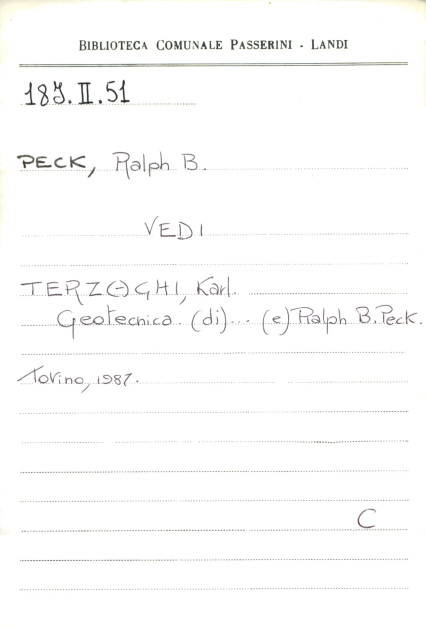 BIBLIOTECA COMUNALE PASSERINI - LANDI
PECK, Ralph B.
VEDI
TERZAGHI, Karl.
Geotecnica (di)... (e) Ralph B. Peck.
Torino, 1987.
C